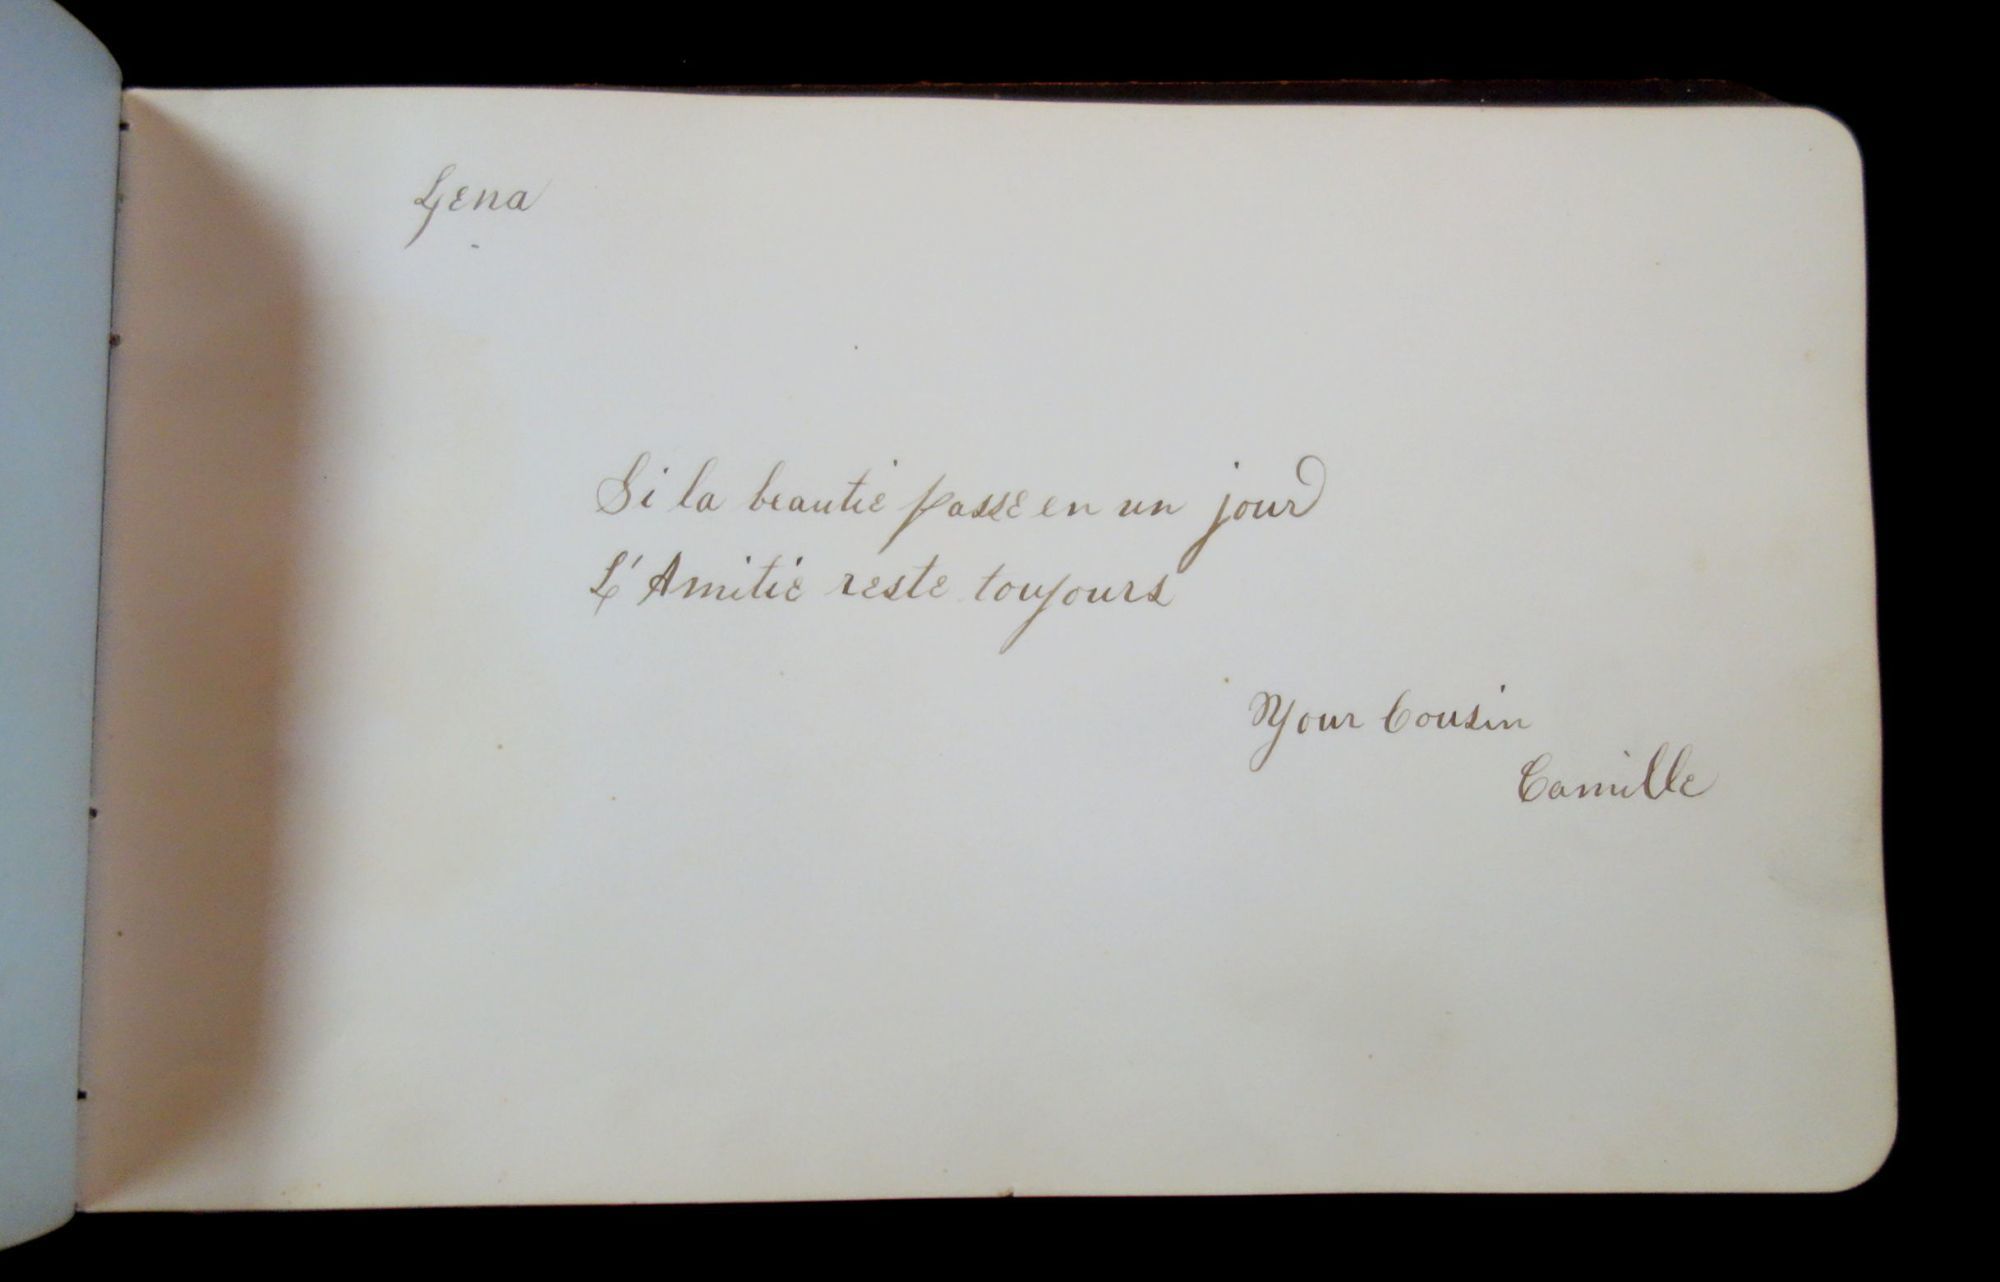 Lena
Si la beautie passe en un jour
L'Amitie reste toujours
Your Cousin
Camille